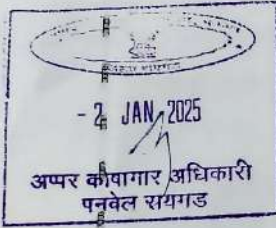 - 2 JAN 2025
अप्पर कोषागार अधिकारी
पनवेल रायगड